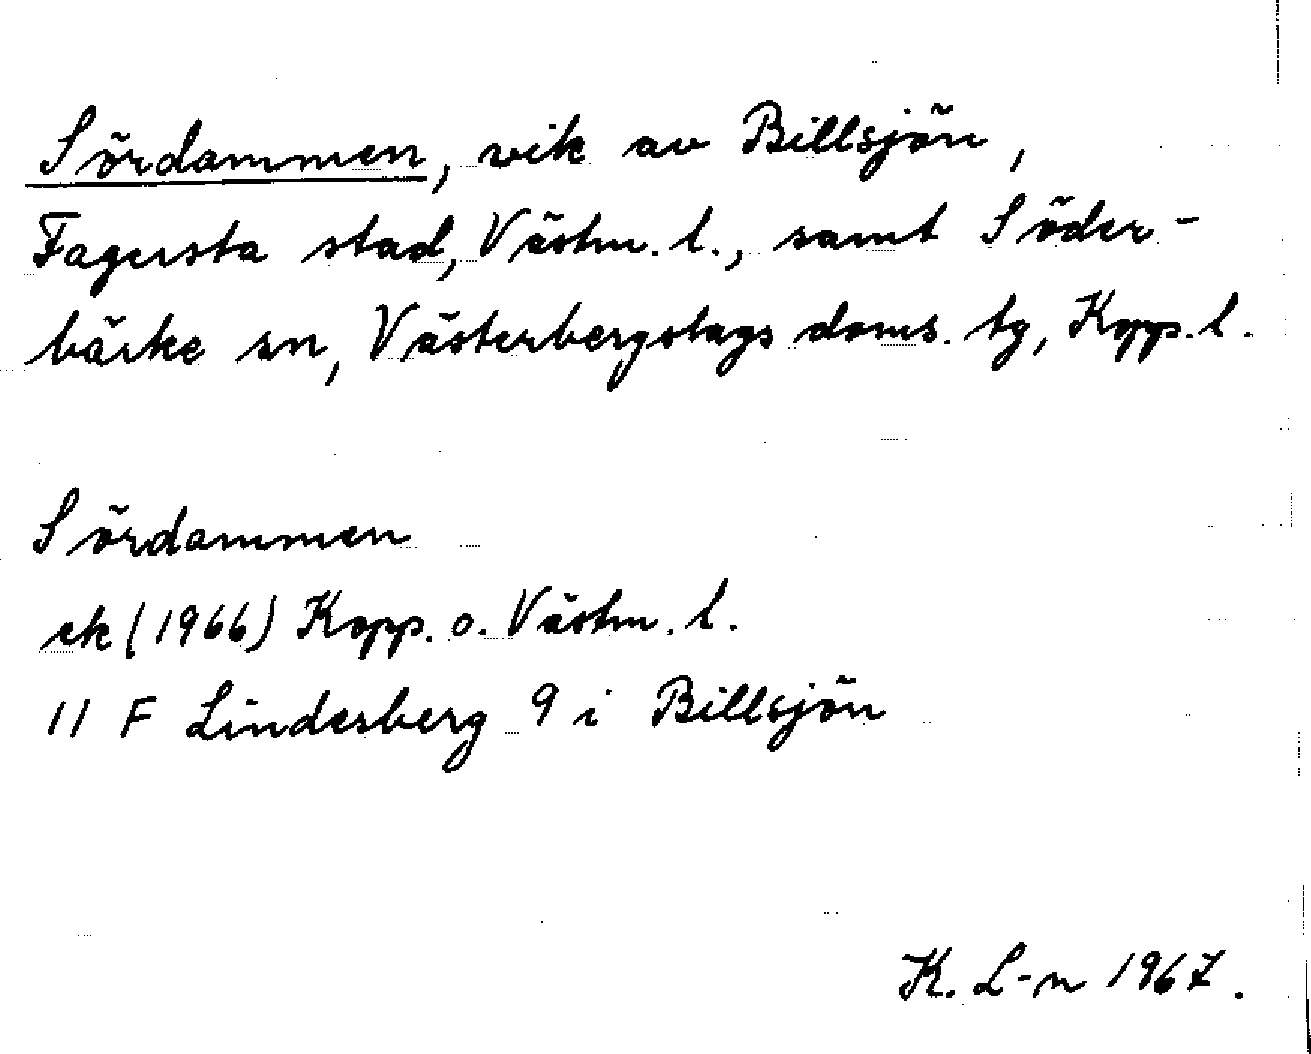 Sördammen, vik av Billsjön,
Fagersta stad, Västm. l., samt Söder-
bärke sn, Västerbergslags doms. tg, Kopp. l.
Sördammen
ek (1966) Kopp. o. Västm. l.
11 F Lindesberg 9 i Billsjön
K. L-n 1967.